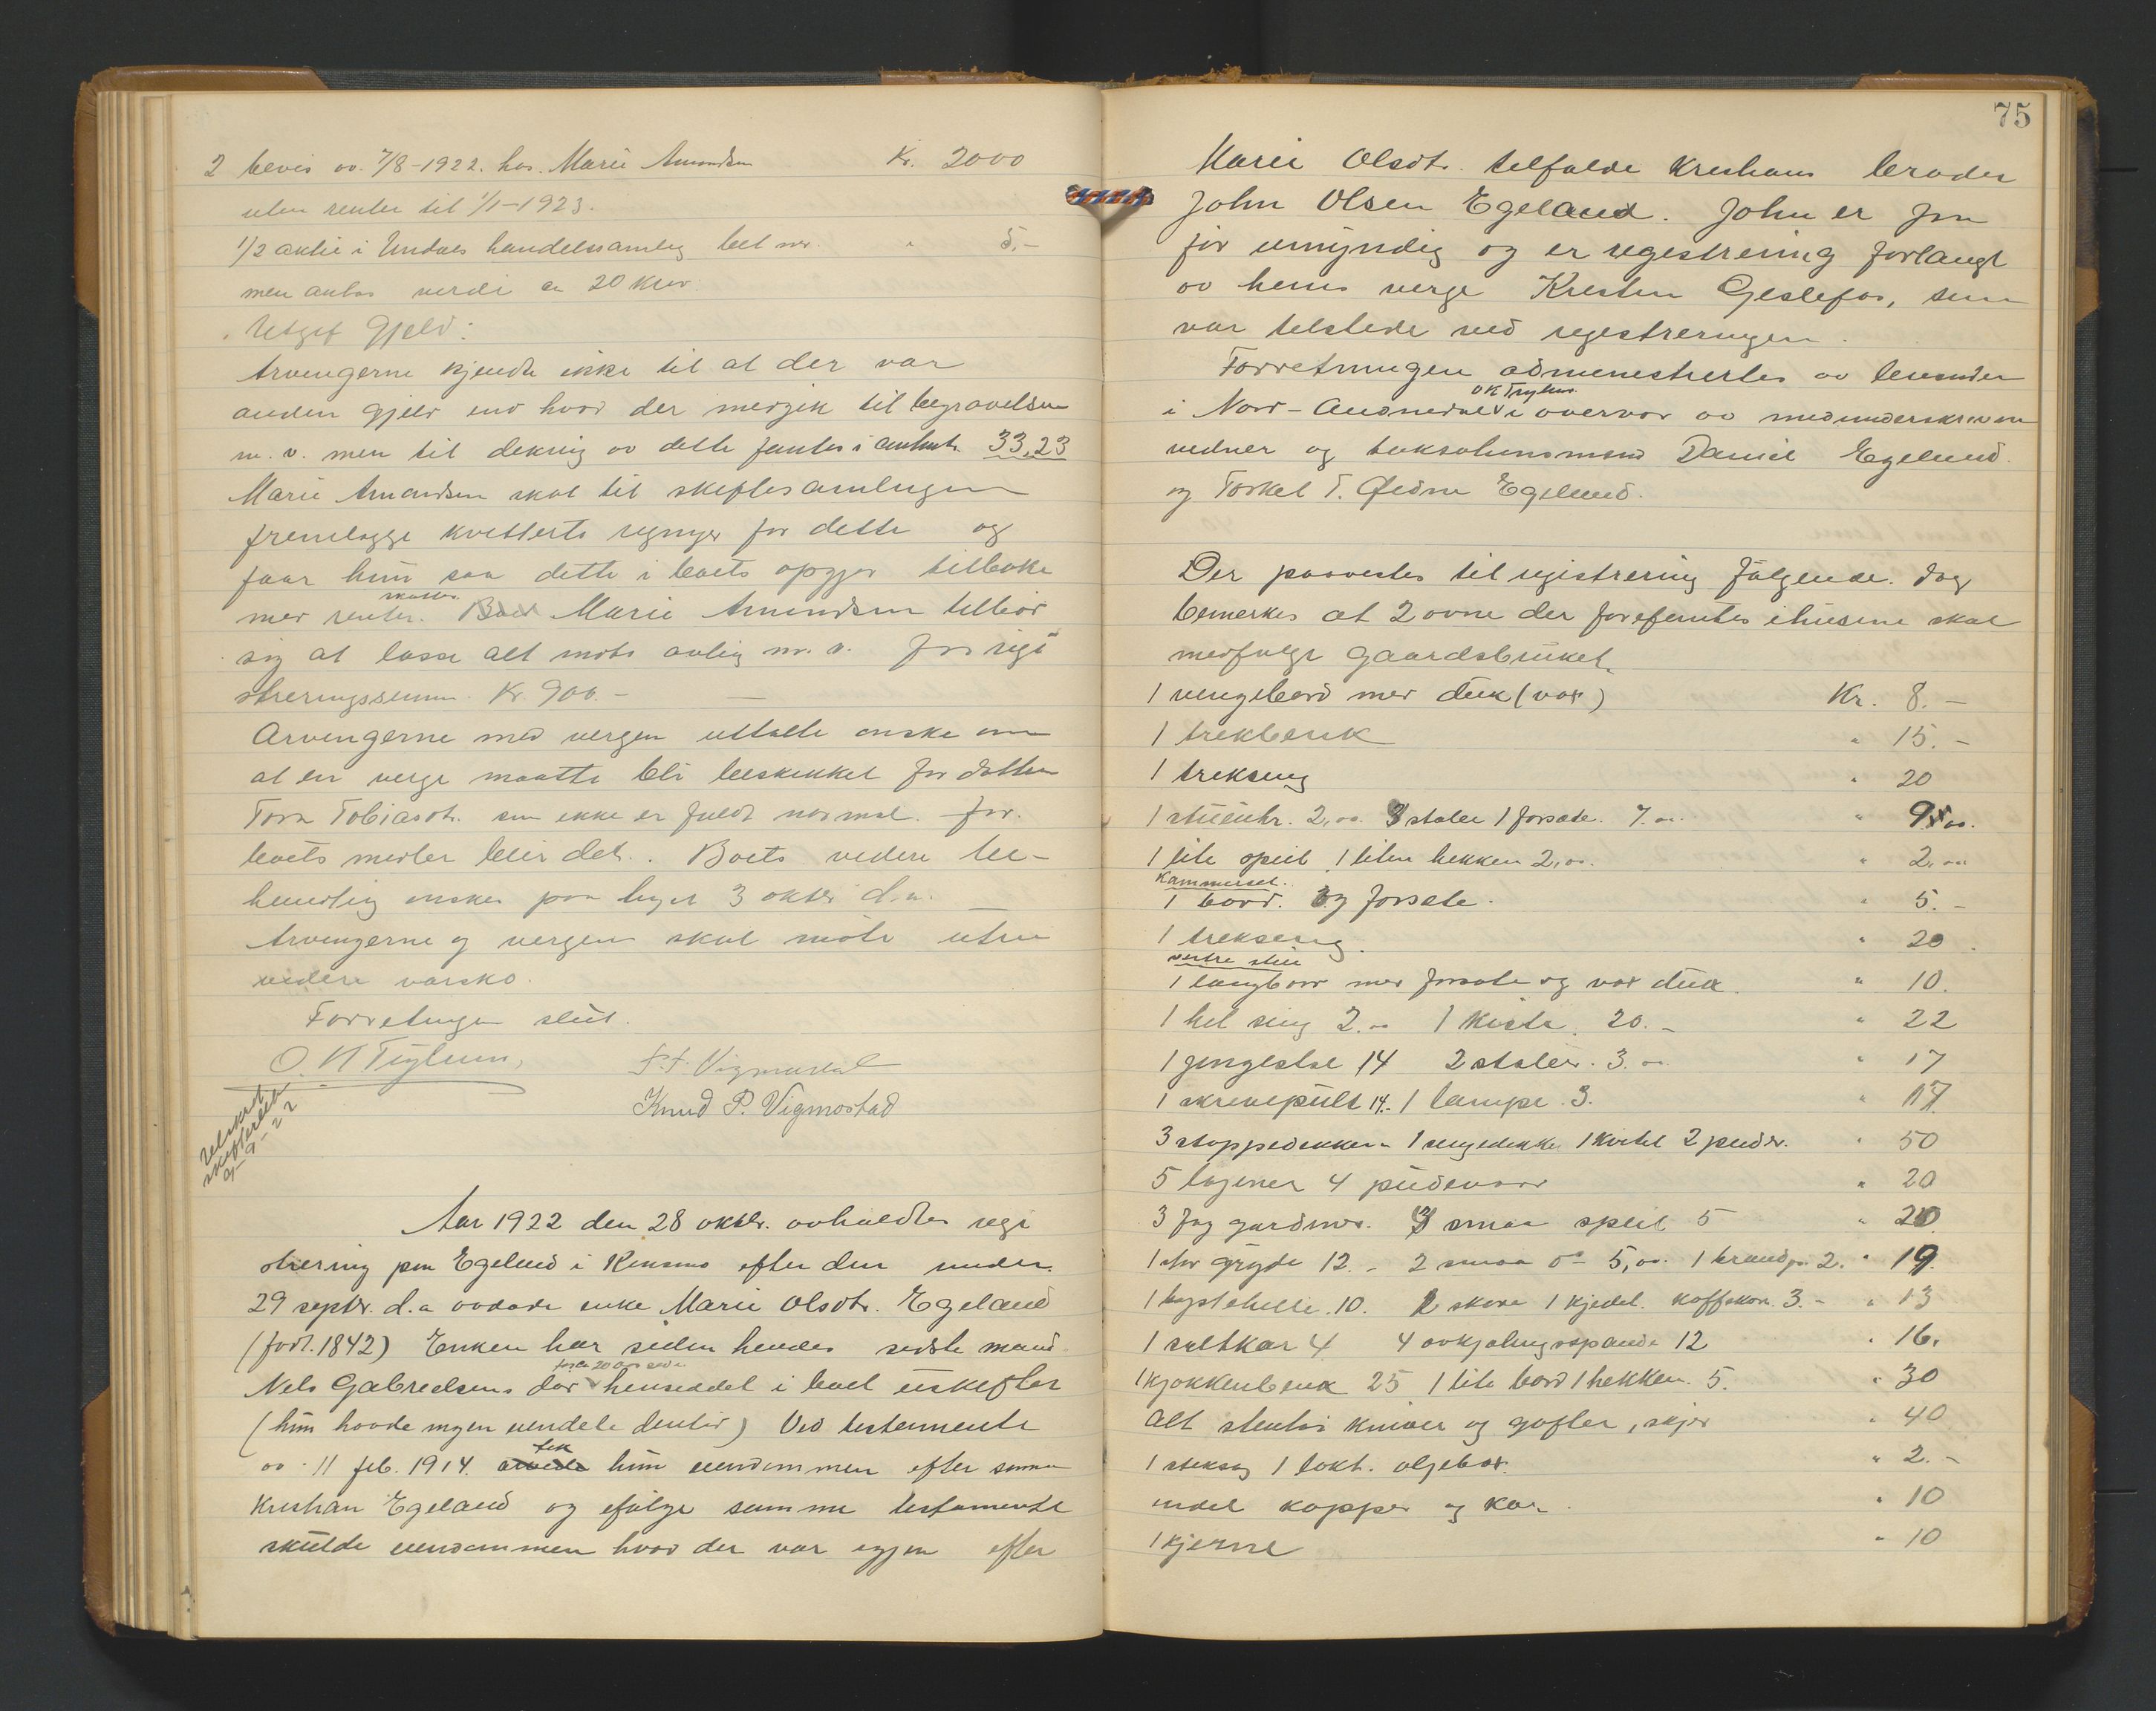 2 bevis av 7/8-1922. hos. Marie Amundsen Kr. 2000
uten renter til 1/1-1923.
1/2 aktie i Undals handelssamlag bet med. " 5.-
men antas verdi ca 20 kron.
Utgift Gjeld:
Arvingerne kjendte ikke til at der var
anden gjeld end hvad der medgik til begravelsen
m. v. men til dekning av dette fantes i contant. 33,23
Marie Amundsen skal til skiftesamlingen
fremlægge kvitterte regninger for dette og
faar hun saa dette i boets opgjør tilbake
med renter. skatter. Marie Amundsen tilbør
sig at løsse alt motb avlig m. v. for regi
streringssum. Kr 900.-
Arvingerne med vergen uttalte ønske om
at en verge maatte bli beskikket for datteren
Tora Tobiasdtr. som ikke er fuldt normal. for.
boets midler blir delt. Boets videre be-
handling ønskes paa tinget 3 oktbr d.a.
Arvingerne og vergen skal møte uten
videre varsko.
Forretningen slut.
O. K Tryland, T. T. Vigmostad
Knud P. Vigmostad
Utskrift
skifteretten
9-9-22
Aar 1922 den 28 oktbr. avholdtes regi
strering paa Egeland i Konsmo efter den under
29 septbr. d.a avdøde enke Marie Olsdtr. Egeland
(født. 1842) Enken har siden hendes sidste mand
Nels Gabrielsens død for ca 20 aar siden hensiddet i boet uskiftet
(hun havde ingen eiendele dentid) Ved testamente
av 11 feb. 1914. fik hun eiendommen efter sønnen
Kristian Egeland og ifølge samme testamente
skulde eiendommen hvad der var igjen efter
75
Marie Olsdtr. tilfalde Kristians broder
John Olsen Egeland. John er fra
før umyndig og er registrering forlangt
av hans verge Kristen Gislefos, som
var tilstede ved registreringen.
Forretningen administrertes av lensmanden
i Nord-Audnedal OK Tryland i overvær av medunderskrevne
vidner og taksationsmænd Daniel Egeland
og Torkel T. Øidne Egeland.
Der paavistes til registrering følgende. dog
bemerkes at 2 ovne der forefantes i husene skal
medfølge gaardsbruket.
1 vingebord med duk (vox) Kr. 8.-
1 trekbenk " 15.-
1 trekseng " 20
1 stueuhr. 2,00. 3 stoler 1 forsæte. 7.00. " 9.00.
1 lite speil 1 liten hekken 2,00. " 2,00
Kammerset.
1 bord. og forsæte. " 5.-
1 trekseng. " 20.
vestre stue
1 langbord med forsæte og vox duk. " 10.
1 hel seng 2.00 1 kiste. 20.- " 22
1 gyngestol 14 2 stoler. 3.00 " 17
1 skrivepult 14.- 1 lampe. 3. " 17
3 stoppedekken 1 sengedekke 1 kvitel 2 puder. " 50
5 lagener 4 pudevaar " 20
3 fag gardiner. 3 smaa speil 5 " 20
1 stor gryde 12.- 2 smaa do 5,00. 1 brandp. 2. " 19.
1 bøstehelle. 10. 1 kjedel. kaffekan. 3.- " 13
1 saltkar 4 4 avkjølingsspande 12 " 16.
1 kjøkkenbenk 25 1 lite bord 1 hekken. 5. " 30
Alt stentøi kniver og gafler, skjer " 40
1 stiksag 1 lokt. oljebox. " 2.-
endel kopper og kar. " 10
1 kjerne " 10